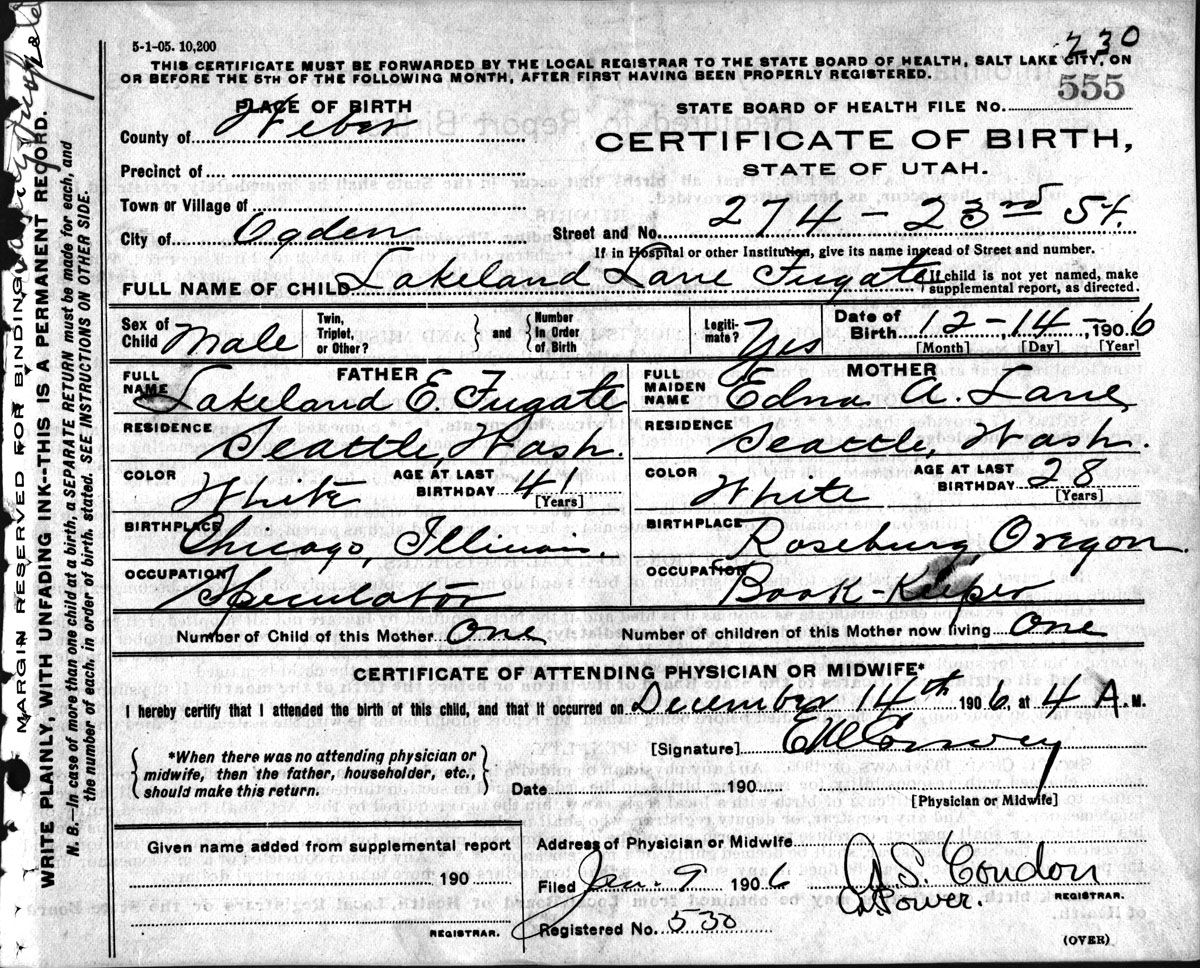 230
5-1-05. 10,200
THIS CERTIFICATE MUST BE FORWARDED BY THE LOCAL REGISTRAR TO THE STATE BOARD OF HEALTH, SALT LAKE CITY, ON
OR BEFORE THE 5TH OF THE FOLLOWING MONTH, AFTER FIRST HAVING BEEN PROPERLY REGISTERED.
555
PLACE OF BIRTH
STATE BOARD OF HEALTH FILE NO.
County of Weber
CERTIFICATE OF BIRTH,
STATE OF UTAH.
Precinct of
Town or Village of
City of Ogden
Street and No. 274 - 23rd St.
If in Hospital or other Institution, give its name instead of Street and number.
FULL NAME OF CHILD Lakeland Lane Fugate
If child is not yet named, make
supplemental report, as directed.
Sex of
Child Male
Twin,
Triplet,
or Other?
and
Number
in Order
of Birth
Legiti-
mate? Yes
Date of
Birth 12-14-, 1906
[Month] [Day] [Year]
FATHER
FULL
NAME Lakeland E. Fugate
RESIDENCE
Seattle, Wash.
COLOR
White
AGE AT LAST
BIRTHDAY 41
[Years]
BIRTHPLACE
Chicago, Illinois.
OCCUPATION
Speculator
MOTHER
FULL
MAIDEN
NAME Edna A. Lane
RESIDENCE
Seattle, Wash.
COLOR
White
AGE AT LAST
BIRTHDAY 28
[Years]
BIRTHPLACE
Roseburg Oregon.
OCCUPATION
Book-Keeper
Number of Child of this Mother One
Number of children of this Mother now living One
CERTIFICATE OF ATTENDING PHYSICIAN OR MIDWIFE*
I hereby certify that I attended the birth of this child, and that it occurred on December 14th 1906, at 4 A. M.
*When there was no attending physician or
midwife, then the father, householder, etc.,
should make this return.
[Signature]
Date 190
[Physician or Midwife]
Given name added from supplemental report
190
REGISTRAR.
Address of Physician or Midwife
Filed Jan. 9 1906
A.S. Condon
Power.
REGISTRAR.
Registered No. 530
(OVER)
MARGIN RESERVED FOR BINDING
WRITE PLAINLY, WITH UNFADING INK--THIS IS A PERMANENT RECORD.
N. B.—In case of more than one child at a birth, a SEPARATE RETURN must be made for each, and
the number of each, in order of birth, stated. SEE INSTRUCTIONS ON OTHER SIDE.